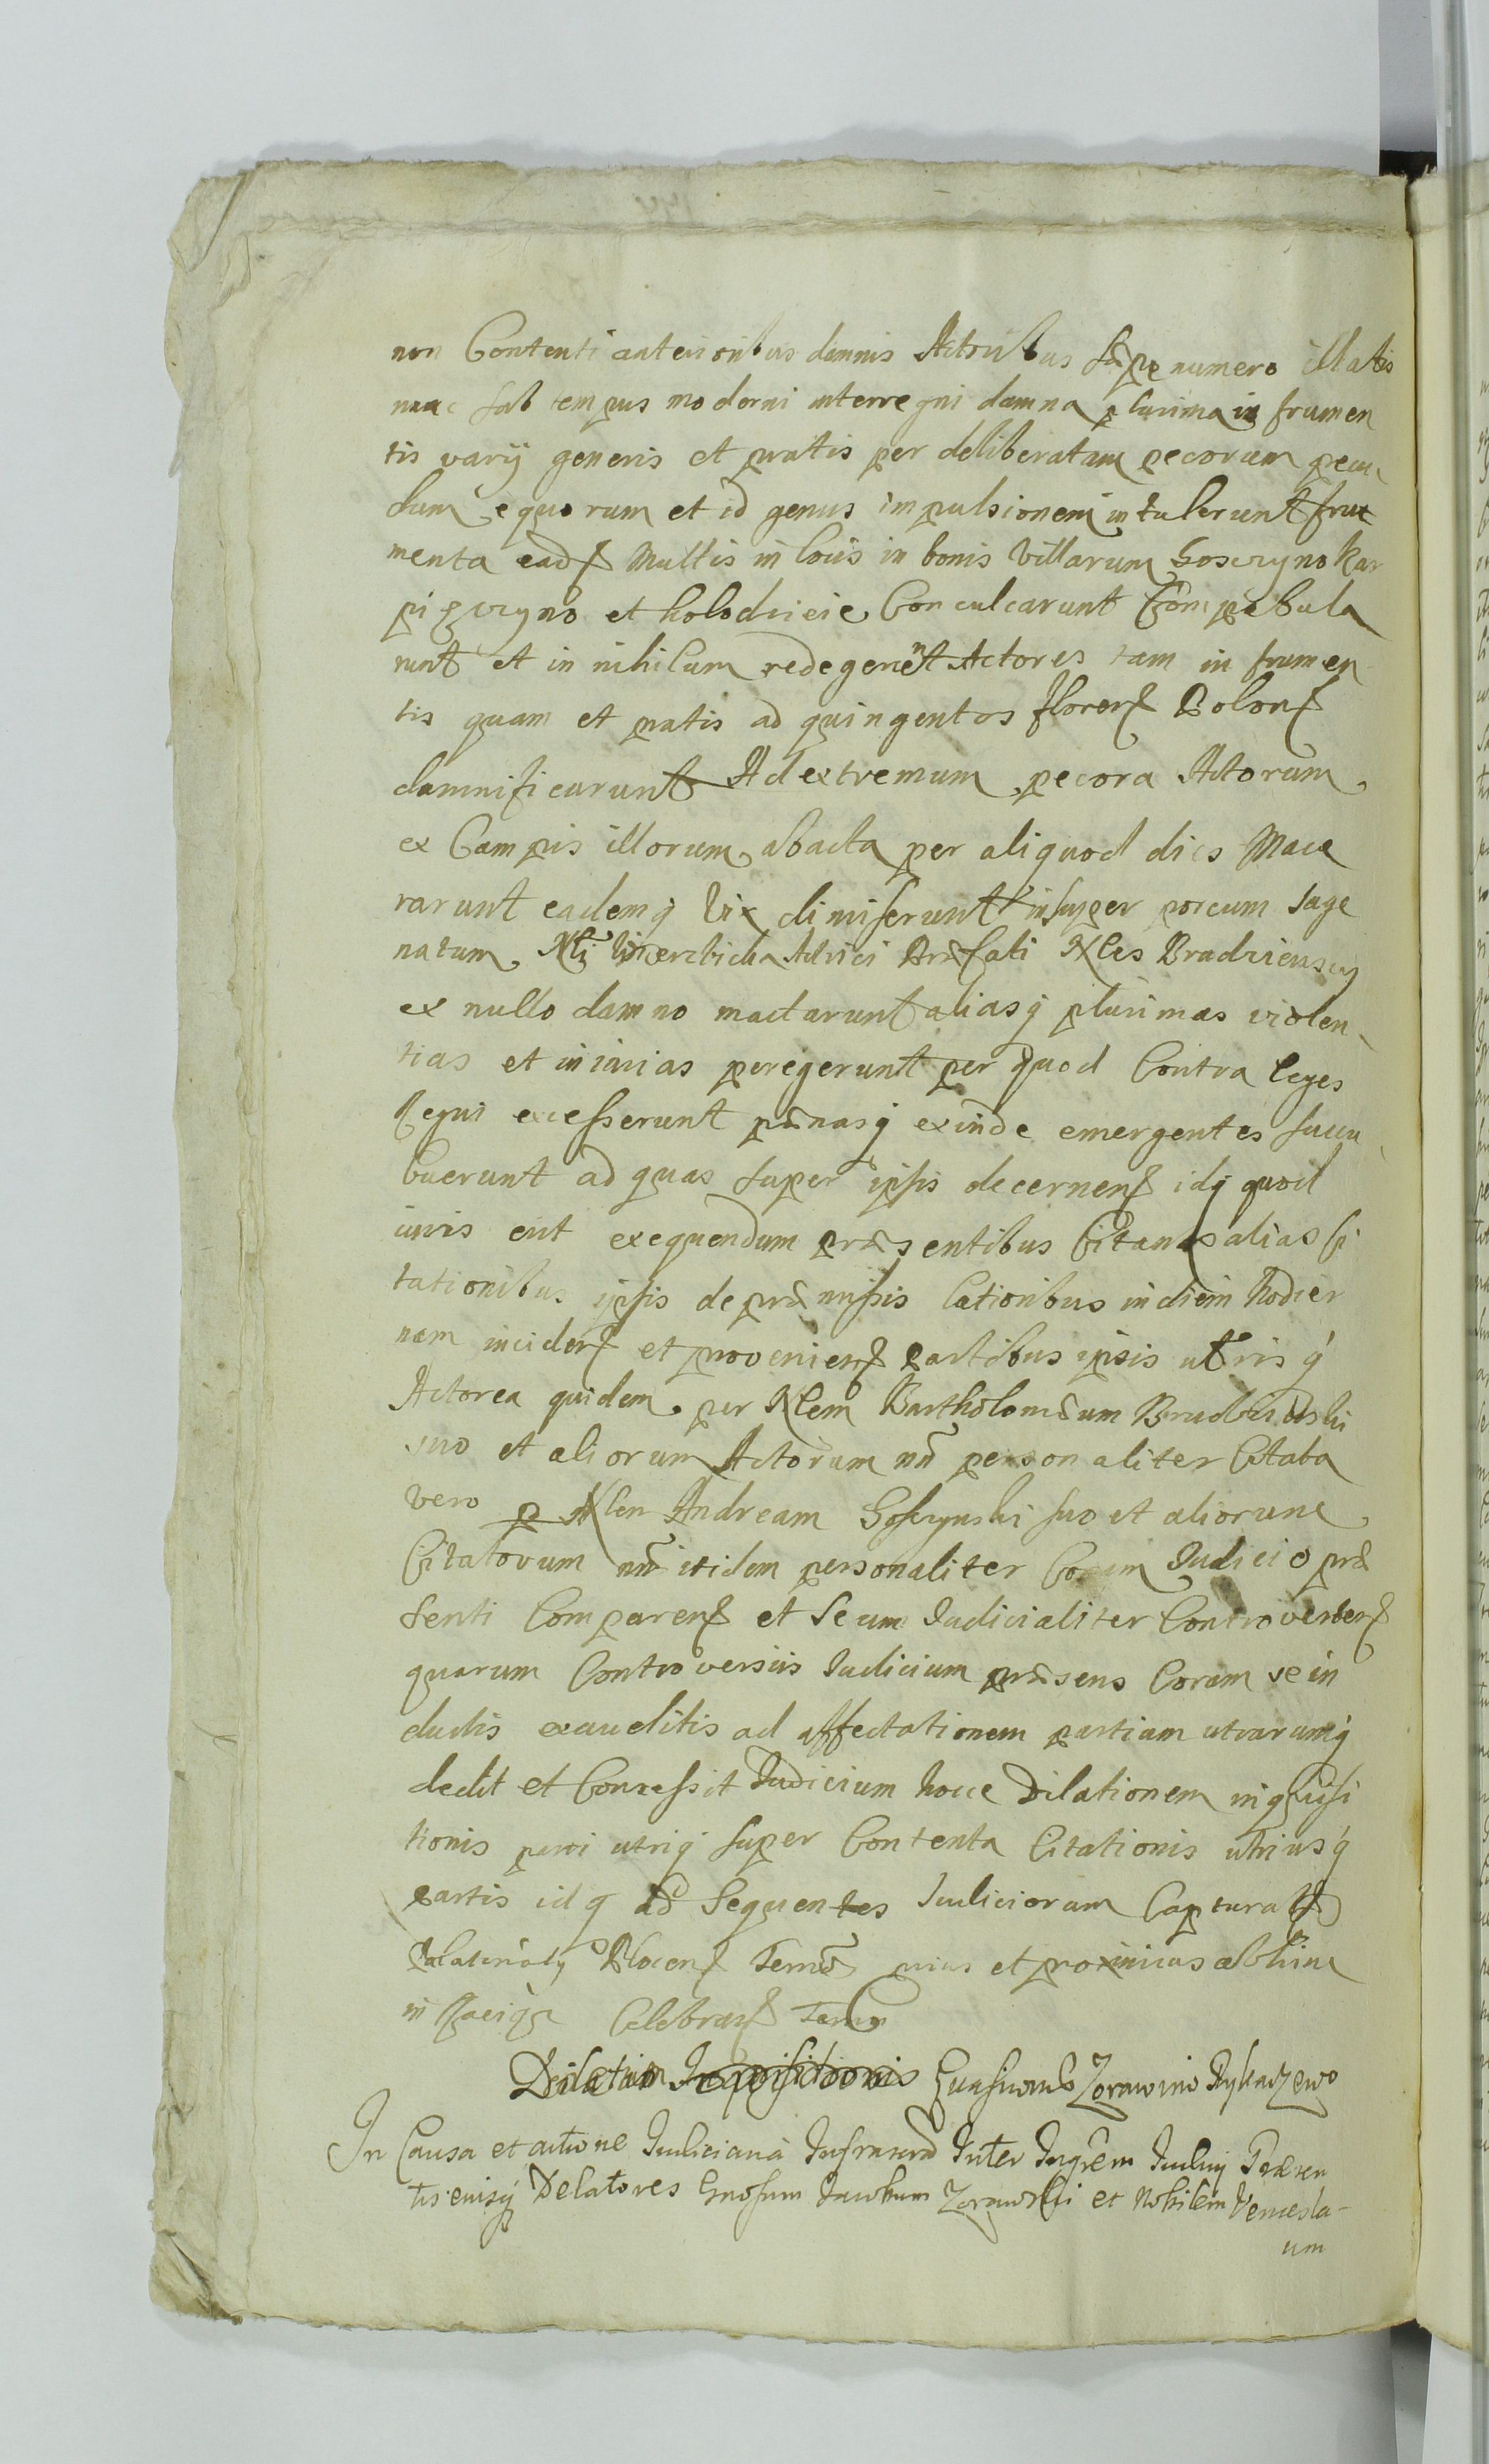 non Contenti anterioribus damnis Actoribus sæpe numero illatis
nunc sub tempus moderni interregni damna plurima in frumen
tis varij generis et pratis per deliberatam pecorum pecu
dum equorum et id genus impulsionem intulerunt fru
menta ead Multis in locis in bonis Villarum Gosczyno Kar
pi et Conculcarunt Compabula
runt et in nihilum redegerunt Actores tam in frumen
tis quam et pratis ad quingentos floren Polon
damnificarunt Ad extremum pecora Actorum
ex Campis illorum abacta per aliquod dies Mace
rarunt eademq Vix dimiserunt insuper porcum sagi
natum præfati Nles
ex nullo damno mactarunt aliasq plurimas violen
tias et iniurias peregerunt per quod Contra leges
Regni excesserunt pænasq exinde emergentes succu
buerunt ad quas super ipsis decernen idq quod
iuris erit exequendum præsentibus Citantes alias Ci
tationibus ipsis de præmissis lationibus in diem hodier
nam inciden et provenien partibus ipsis utrisq
Actorea quidem per Nlem Bartholomæum
suo et aliorum Actorum nn personaliter Citata
vero p Nlem Andream Gosczynski suo et aliorum
Citatorum nn itidem personaliter Coram Iudicio præ
senti Comparen et Secum Iudicialiter Controverten
quarum Controversiis Iudicium præsens Coram se in
ductis exauditis ad affectationem partium utrarumq
dedit et Concessit Iudicium hocce Dilationem inquisi
tionis parti utriq super Contenta Citationis utriusq
partis idq ad Sequentes Iudiciorum Captural
Palatinaty Plocen Termin et proximius abhinc
in Raciąż Celebran Termin
Dilation Inquisitionis Zorawino Rykaczewo
In Causa et actione Iudiciaria Infrascrip Inter Iudicij Præsen
tis eiusq Delatores Gnosum Iacobum Zorawski et Nobilem Vences la-
um